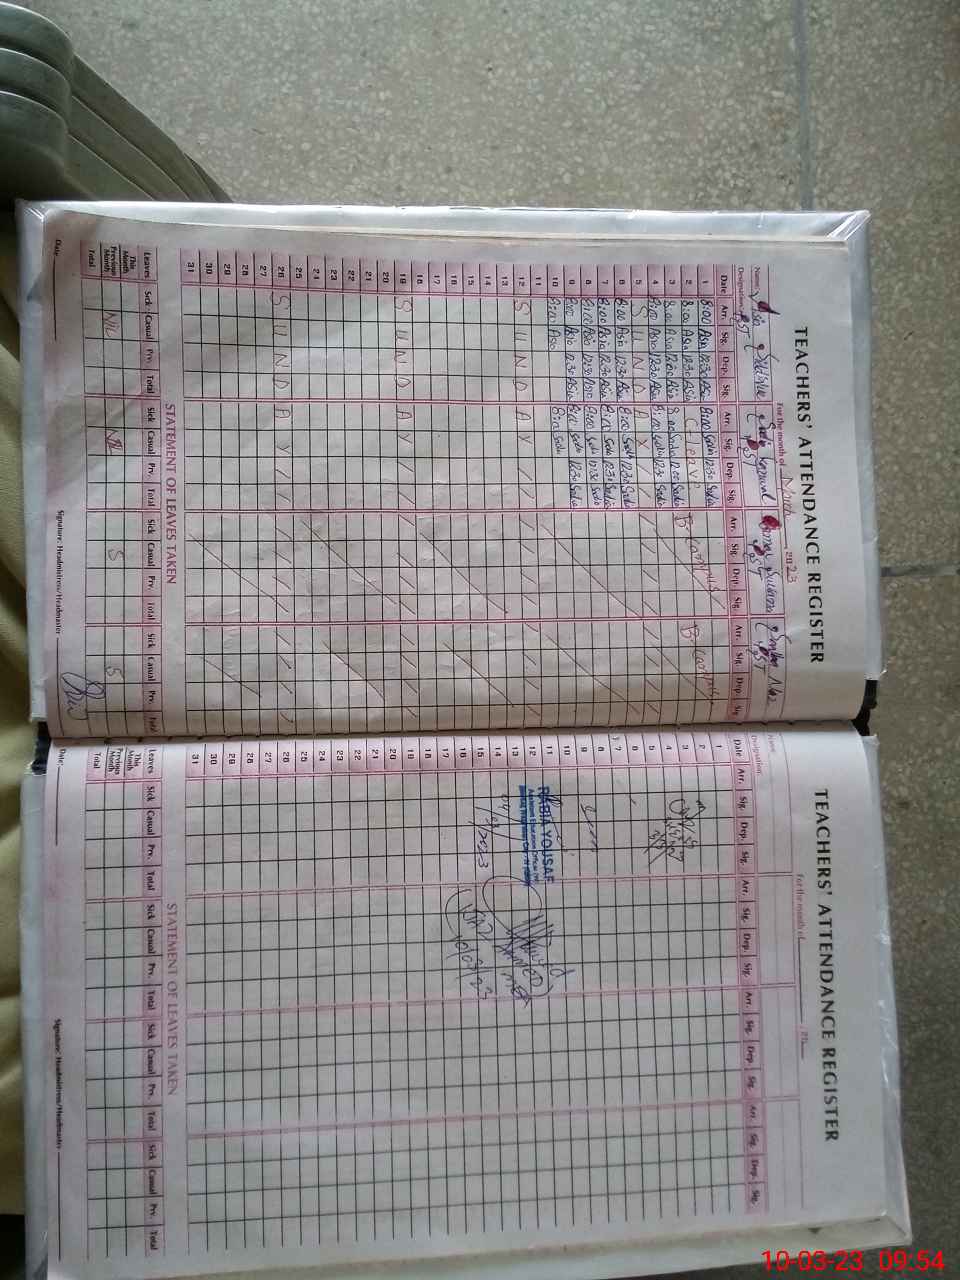 TEACHERS' ATTENDANCE REGISTER
For the month of March 2023
Name: Asia Siddique Sadia Kanwal Sultana
Designation: PST PST PST PST
Date Arr. Sig. Dep. Sig. Arr. Sig. Dep. Sig. Arr. Sig. Dep. Sig. Arr. Sig. Dep. Sig.
1 8:00 Asia 12:30 Asia 8:00 Sadia 12:30 Sadia
2 8:00 Asia 12:30 Asia C-leave B. B.
3 8:00 Asia 12:00 Asia 8:00 Sadia 12:00 Sadia
4 8:00 Asia 12:30 Asia 8:00 Sadia 12:30 Sadia
5 S U N D A Y
6 8:00 Asia 12:30 Asia 8:00 Sadia 12:30 Sadia
7 8:00 Asia 12:30 Asia 8:00 Sadia 12:30 Sadia
8 8:00 Asia 12:30 Asia 8:00 Sadia 12:30 Sadia
9 8:00 Asia 12:30 Asia 8:00 Sadia 12:30 Sadia
10 8:00 Asia 8:00 Sadia
11
12 S U N D A Y
13
14
15
16
17
18
19 S U N D A Y
20
21
22
23
24
25
26 S U N D A Y
27
28
29
30
31
STATEMENT OF LEAVES TAKEN
Leaves Sick Casual Prv. Total Sick Casual Prv. Total Sick Casual Prv. Total Sick Casual Prv. Total
This Month
Previous Month NIL NIL 5 5
Total
Date: Signature: Headmistress/Headmaster
TEACHERS' ATTENDANCE REGISTER
For the month of , 20
Name
Designation:
Date Arr. Sig. Dep. Sig. Arr. Sig. Dep. Sig. Arr. Sig. Dep. Sig. Arr. Sig. Dep. Sig.
1
2
3
4
5
6
7
8
9
10
11
12
13
14
15
16
17
18
19
20
21
22
23
24
25
26
27
28
29
30
31
RABIA YOUSAF
Assistant Education Officer
STATEMENT OF LEAVES TAKEN
Leaves Sick Casual Prv. Total Sick Casual Prv. Total Sick Casual Prv. Total Sick Casual Prv. Total
This Month
Previous Month
Total
Date: Signature: Headmistress/Headmaster
10-03-23 09:54